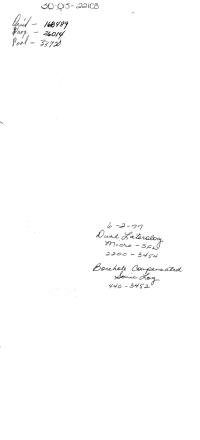 30-05-22103
Grid - 168489
Prop - 26014
Pool - 
6-2-77
Dual Laterolog
Micro-SFL
2200-3454
Borehole Compensated
Sonic Log
440-3452